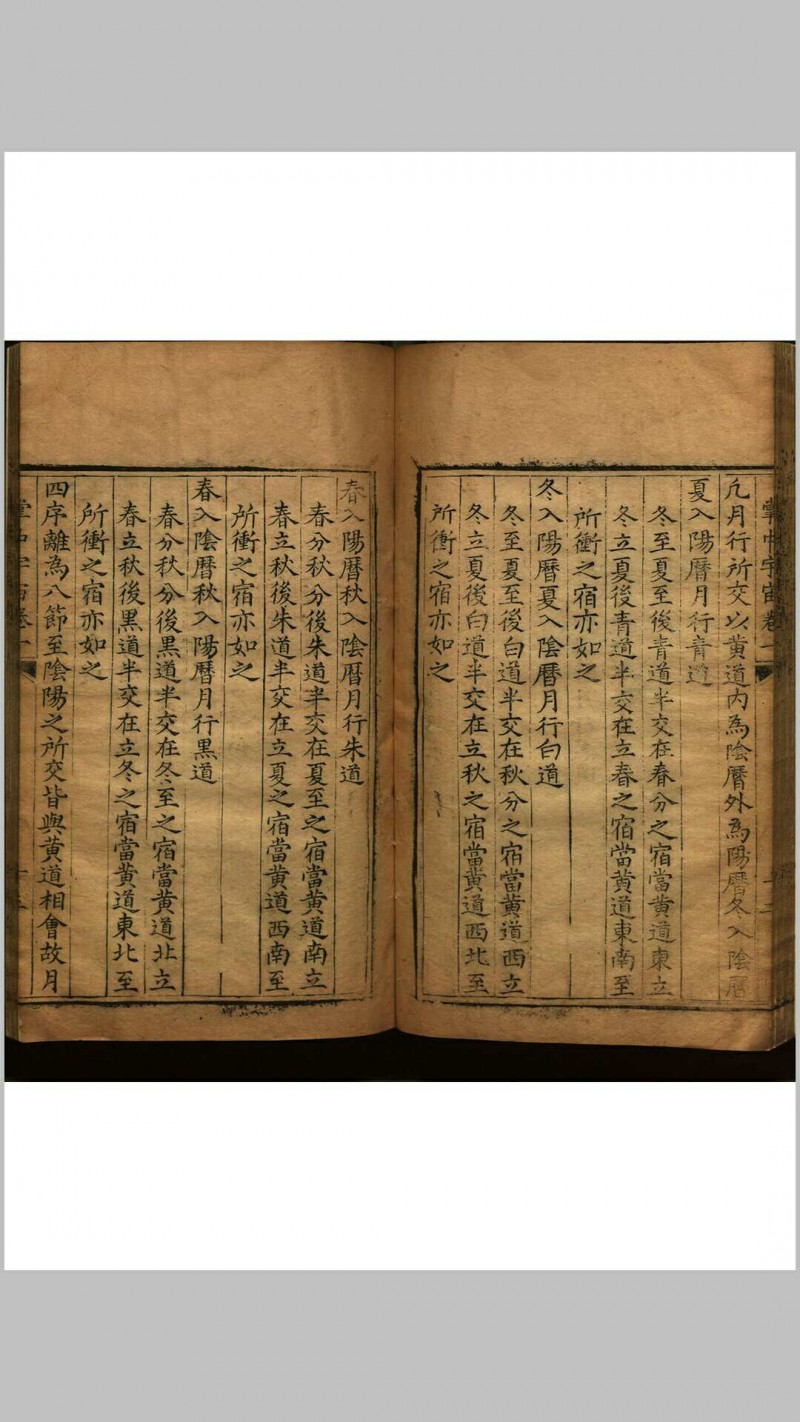 掌中宇宙卷一
凡月行所交以黄道内為陰曆外為陽曆冬入陰曆
夏入陽曆月行青道
冬至夏至後青道半交在春分之宿當黄道東立
冬立夏後青道半交在立春之宿當黄道東南至
所衝之宿亦如之
冬入陽曆夏入陰曆月行白道
冬至夏至後白道半交在秋分之宿當黄道西立
冬立夏後白道半交在立秋之宿當黄道西北至
所衝之宿亦如之
春入陽曆秋入陰曆月行朱道
春分秋分後朱道半交在夏至之宿當黄道南立
春立秋後朱道半交在立夏之宿當黄道西南至
所衝之宿亦如之
春入陰曆秋入陽曆月行黒道
春分秋分後黒道半交在冬至之宿當黄道北立
春立秋後黒道半交在立冬之宿當黄道東北至
所衝之宿亦如之
四序離為八節至陰陽之所交皆與黄道相會故月